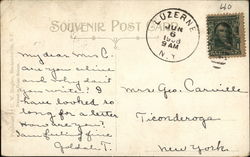 40
SOUVENIR POST CARD
LUZERNE
JUN
6
9 AM
N.Y.
My dear Mrs C.
are you alive
and why don't
you write? I
have looked so
long for a letter
How are you?
I am feeling fine
Mrs. Geo. Carville
Ticonderoga
New York